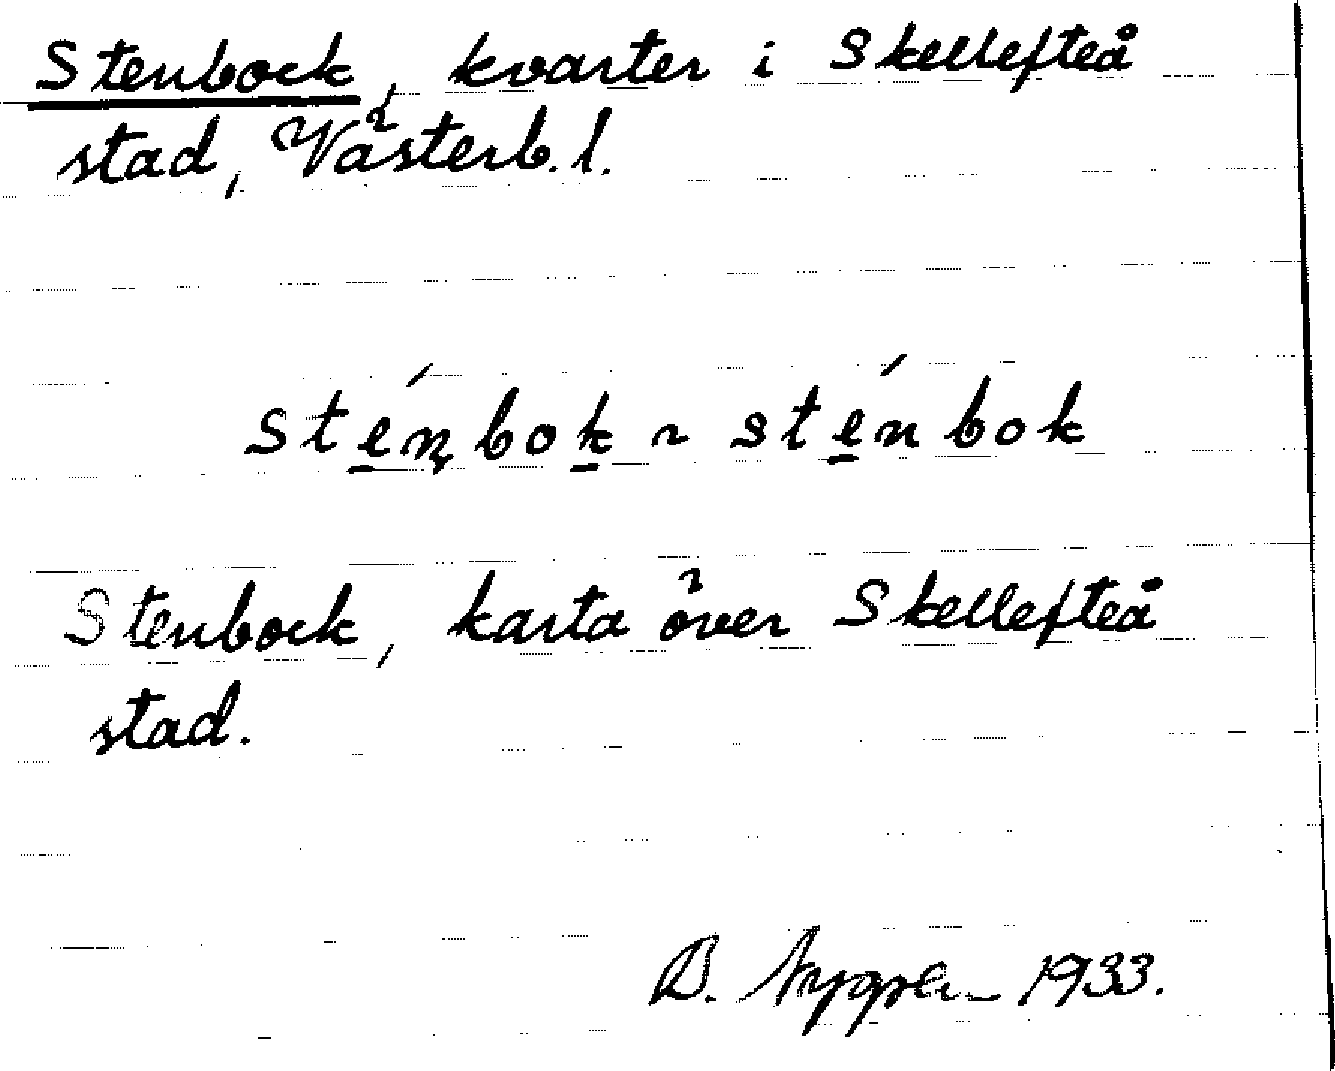 Stenbock, kvarter i Skellefteå
stad, Västerb. l.
sténbok ~ sténbok
Stenbock, karta över Skellefteå
stad.
B. Nygren 1933.